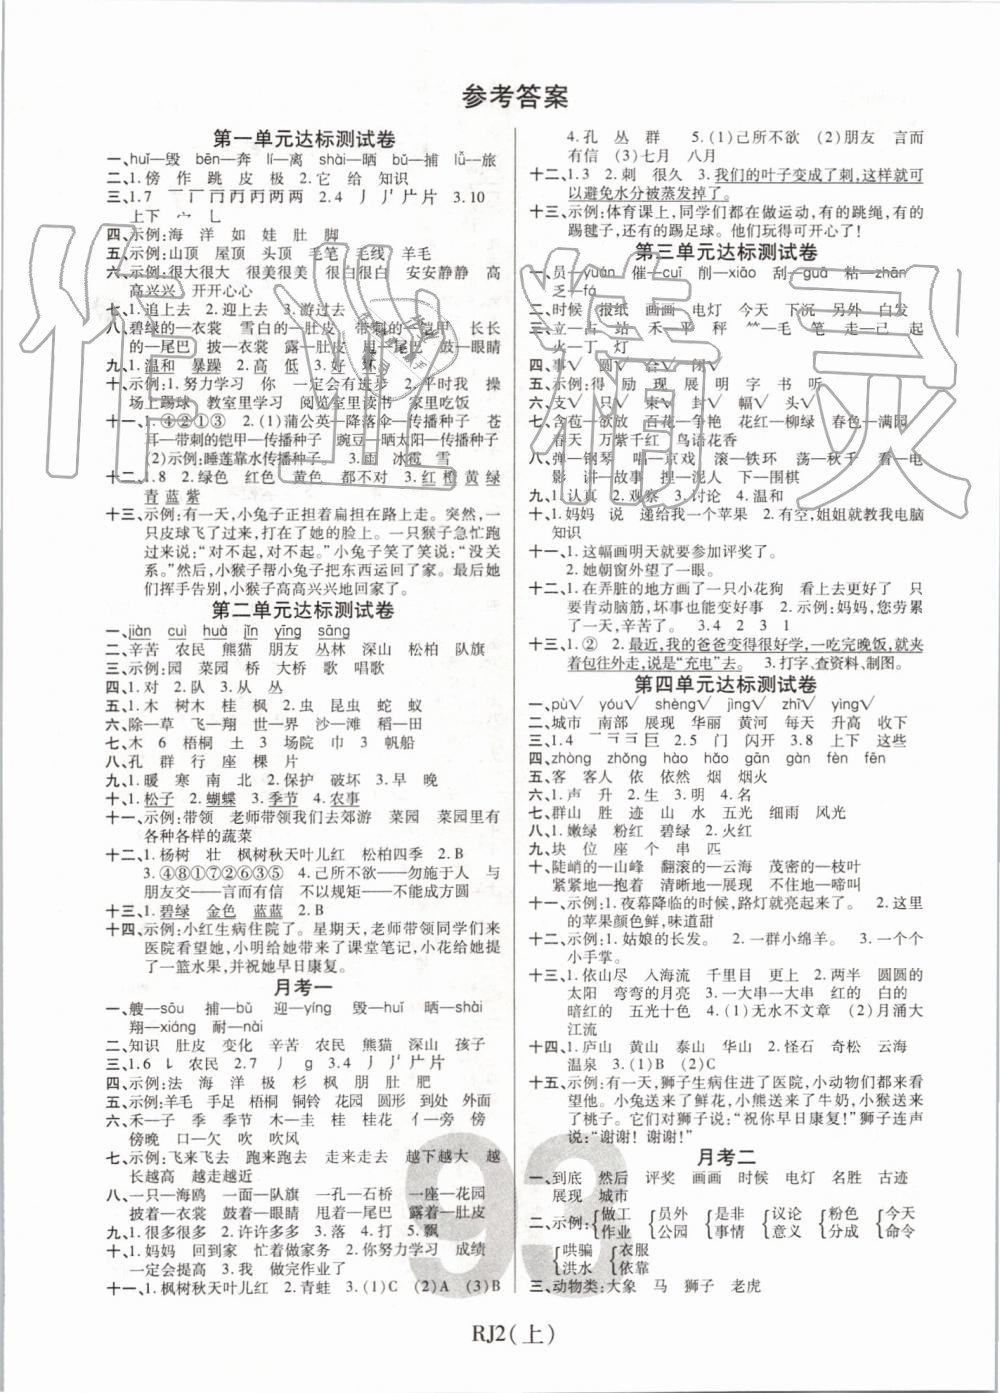 参考答案
第一单元达标测试卷
一、huǐ—毁 bēn—奔 lí—离 shài—晒 bǔ—捕 lǚ—旅
二、1.傍 作 跳 皮 极 2.它 给 知识
三、1.7 2.4 丿 片 3.10
上下 宀 乚
四、示例:海 洋 如 娃 肚 脚
五、示例:山顶 屋顶 头顶 毛笔 毛线 羊毛
六、示例:很大很大 很美很美 很白很白 安安静静 高
高兴兴 开开心心
七、1.追上去 2.迎上去 3.游过去
八、碧绿的—衣裳 雪白的—肚皮 带刺的—铠甲 长长
的—尾巴 披—衣裳 露—肚皮 甩—尾巴 鼓—眼睛
九、1.温和 暴躁 2.高 低 3.好 坏
十、示例:1.努力学习 你 一定会有进步 2.平时我 操
场上踢球 教室里学习 阅览室里读书 家里吃饭
十一、1.④②①③ 2.(1)蒲公英—降落伞—传播种子 苍
耳—带刺的铠甲—传播种子 豌豆—晒太阳—传播种子
(2)示例:睡莲靠水传播种子 3.雨 冰雹 雪
十二、1.8 2.绿色 红色 黄色 都不对 3.红 橙 黄 绿
青 蓝 紫
十三、示例:有一天,小兔子正担着扁担在路上走。突然,一
只皮球飞了过来,打在了她的脸上。一只猴子急忙跑
过来说:“对不起,对不起。”小兔子笑了笑说:“没关
系。”然后,小猴子帮小兔子把东西送回了家。最后她
们挥手告别,小猴子高高兴兴地回家了。
第二单元达标测试卷
一、jiàn cuì huà jǐn yīng sāng
二、辛苦 农民 熊猫 朋友 丛林 深山 松柏 队旗
三、示例:园 菜园 桥 大桥 歌 唱歌
四、1.对 2.队 3.从 丛
五、1.木 树木 桂 枫 2.虫 昆虫 蛇 蚁
六、除—草 飞—翔 世—界 写—诗 滩—滩 稻—田
七、木 6 梧桐 土 3 场院 巾 3 帆船
八、孔 群 行 座 棵 片
九、1.暖 寒 南 北 2.保护 破坏 3.早 晚
十、1.松子 2.蝴蝶 3.季节 4.农事
十一、示例:带领 老师带领我们去郊游 菜园 菜园里有
各种各样的蔬菜
十二、1.杨树 壮 枫树秋天叶儿红 松柏四季 2.B
3.④⑧①⑦②⑥③⑤ 4.己所不欲——勿施于人 与
朋友交——言而有信 不以规矩——不能成方圆
十三、1.碧绿 金色 蓝蓝 2.B
十四、示例:小红生病住院了。星期天,老师带领同学们来
医院看望她,小明给她带来了课堂笔记,小花给她提
了一篮水果,并祝她早日康复。
月考一
一、艘—sōu 捕—bǔ 迎—yíng 毁—huǐ 晒—shài
翔—xiáng 耐—nài
二、知识 肚皮 变化 辛苦 农民 熊猫 深山 孩子
三、1.6 乚 农民 2.7 丿 g 3.4 丿 片
四、示例:法 海 洋 极 杉 枫 朋 肚 肥
五、示例:羊毛 手足 梧桐 铜铃 花园 圆形 到处 外面
六、禾—子 季 季节 木—圭 桂 桂花 亻—旁 傍
傍晚 口—欠 吹 吹风
七、示例:飞来飞去 跑来跑去 走来走去 越下越大 越
长越高 越走越近
八、一只—海鸥 一面—队旗 一孔—石桥 一座—花园
披着—衣裳 戴着—眼镜 甩着—尾巴 露着—肚皮
九、1.很多很多 2.许许多多 3.落 4.打 5.飘
十、1.妈妈 回到家 忙着做家务 2.你努力学习 成绩
一定会提高 3.我 做完作业了
十一、1.枫树秋天叶儿红 2.青蛙 3.(1)C (2)A (3)B
4.孔 丛 群 5.(1)己所不欲 (2)朋友 言而
有信 (3)七月 八月
十二、1.3 2.刺 很久 3.我们的叶子变成了刺,这样就可
以避免水分被蒸发掉了。
十三、示例:体育课上,同学们都在做运动,有的跳绳,有的
踢毽子,还有的踢足球。他们玩得可开心了!
第三单元达标测试卷
一、员—yuán 催—cuī 削—xiāo 刮—guā 粘—zhān
乏—fá
二、时候 报纸 画画 电灯 今天 下沉 另外 白发
三、立—占 站 禾—平 秤 ⺮—毛 笔 走—己 起
火—丁 灯
四、事√ 圆√ 合√ 闭√
五、示例:得 励 现 展 明 字 书 听
六、支√ 只√ 束√ 封√ 幅√ 头√
七、含苞—欲放 百花—争艳 花红—柳绿 春色—满园
春天 万紫千红 鸟语花香
八、弹—钢琴 唱—京戏 滚—铁环 荡—秋千 看—电
影 讲—故事 捏—泥人 下—围棋
九、1.认真 2.观察 3.讨论 4.温和
十、1.妈妈 说 递给我一个苹果 2.有空,姐姐就教我电脑
知识
十一、1.这幅画明天就要参加评奖了。
2.她朝窗外望了一眼。
十二、1.在弄脏的地方画了一只小花狗 看上去更好了 只
要肯动脑筋,坏事也能变成好事 2.示例:妈妈,您劳累
了一天,辛苦了。 3.4 2 3 1
十三、1.② 2.最近,我的爸爸变得很好学,一吃完晚饭,就夹
着包往外走,说是“充电”去。 3.打字、查资料、制图。
第四单元达标测试卷
一、pù√ yóu√ shèng√ jìng√ zhī√ yìng√
二、城市 南部 展现 华丽 黄河 每天 升高 收下
三、1.4 巨 2.5 门 闪开 3.8 上下 这些
四、zhòng zhǒng hào hǎo gān gàn fèn fēn
五、客 客人 依 依然 烟 烟火
六、1.声 升 2.生 3.明 4.名
七、群山 胜 迹 山 水 五光 细雨 风光
八、1.嫩绿 粉红 碧绿 2.火红
九、块 位 座 个 串 匹
十、陡峭的—山峰 翻滚的—云海 茂密的—枝叶
紧紧地—抱着 清晰地—展现 不住地—啼叫
十一、示例:1.夜幕降临的时候,路灯就亮起来了。 2.这里
的苹果颜色鲜,味道甜
十二、示例:1.姑娘的长发。 2.一群小绵羊。 3.一个个
小手掌。
十三、1.依山尽 入海流 三千尺 落九天 2.两半 圆圆的
太阳 弯弯的月亮 3.一大串一大串的 红的 白的
暗红的 五光十色 4.(1)无水不文章 (2)月涌大
江流
十四、1.庐山 黄山 泰山 华山 2.怪石 奇松 云海
温泉 3.(1)B (2)C
十五、示例:有一天,狮子生病住进了医院,小动物们都来看
望他。小兔送来了鲜花,小熊送来了牛奶,小猴送来
了桃子。它们对狮子说:“祝你早日康复!”狮子连声
说:“谢谢!谢谢!”
月考二
一、到底 然后 评奖 画画 时候 电灯 名胜 古迹
展现 城市
二、示例:{做工 作业 {员外 公园 {是非 事情 {议论 意义 {粉色 分成 {今天 命令
{哄骗 洪水 {衣服 依靠
三、动物类:大象 马 狮子 老虎
RJ2(上)
作业精灵
93